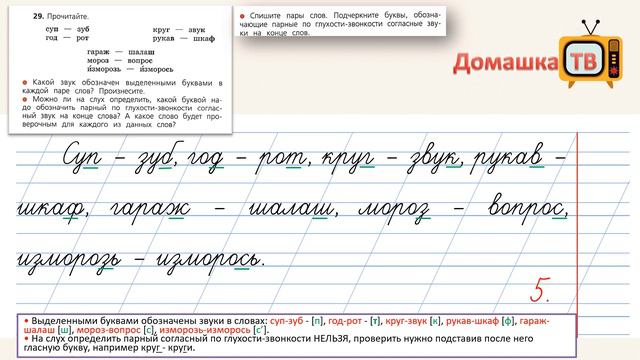 29. Прочитайте.
суп — зуб круг — звук
год — рот рукав — шкаф
гараж — шалаш
мороз — вопрос
и́зморозь — и́зморось
● Какой звук обозначен выделенными буквами в
каждой паре слов? Произнесите.
● Можно ли на слух определить, какой буквой на-
до обозначить парный по глухости-звонкости соглас-
ный звук на конце слова? А какое слово будет про-
верочным для каждого из данных слов?
● Спишите пары слов. Подчеркните буквы, обозна-
чающие парные по глухости-звонкости согласные зву-
ки на конце слов.
Домашка ТВ
Суп – зуб, год – рот, круг – звук, рукав –
шкаф, гараж – шалаш, мороз – вопрос,
изморозь – изморось.
5.
• Выделенными буквами обозначены звуки в словах: суп-зуб - [п], год-рот - [т], круг-звук [к], рукав-шкаф [ф], гараж-
шалаш [ш], мороз-вопрос [с], изморозь-изморось [с'].
• На слух определить парный согласный по глухости-звонкости НЕЛЬЗЯ, проверить нужно подставив после него
гласную букву, например круг - круги.